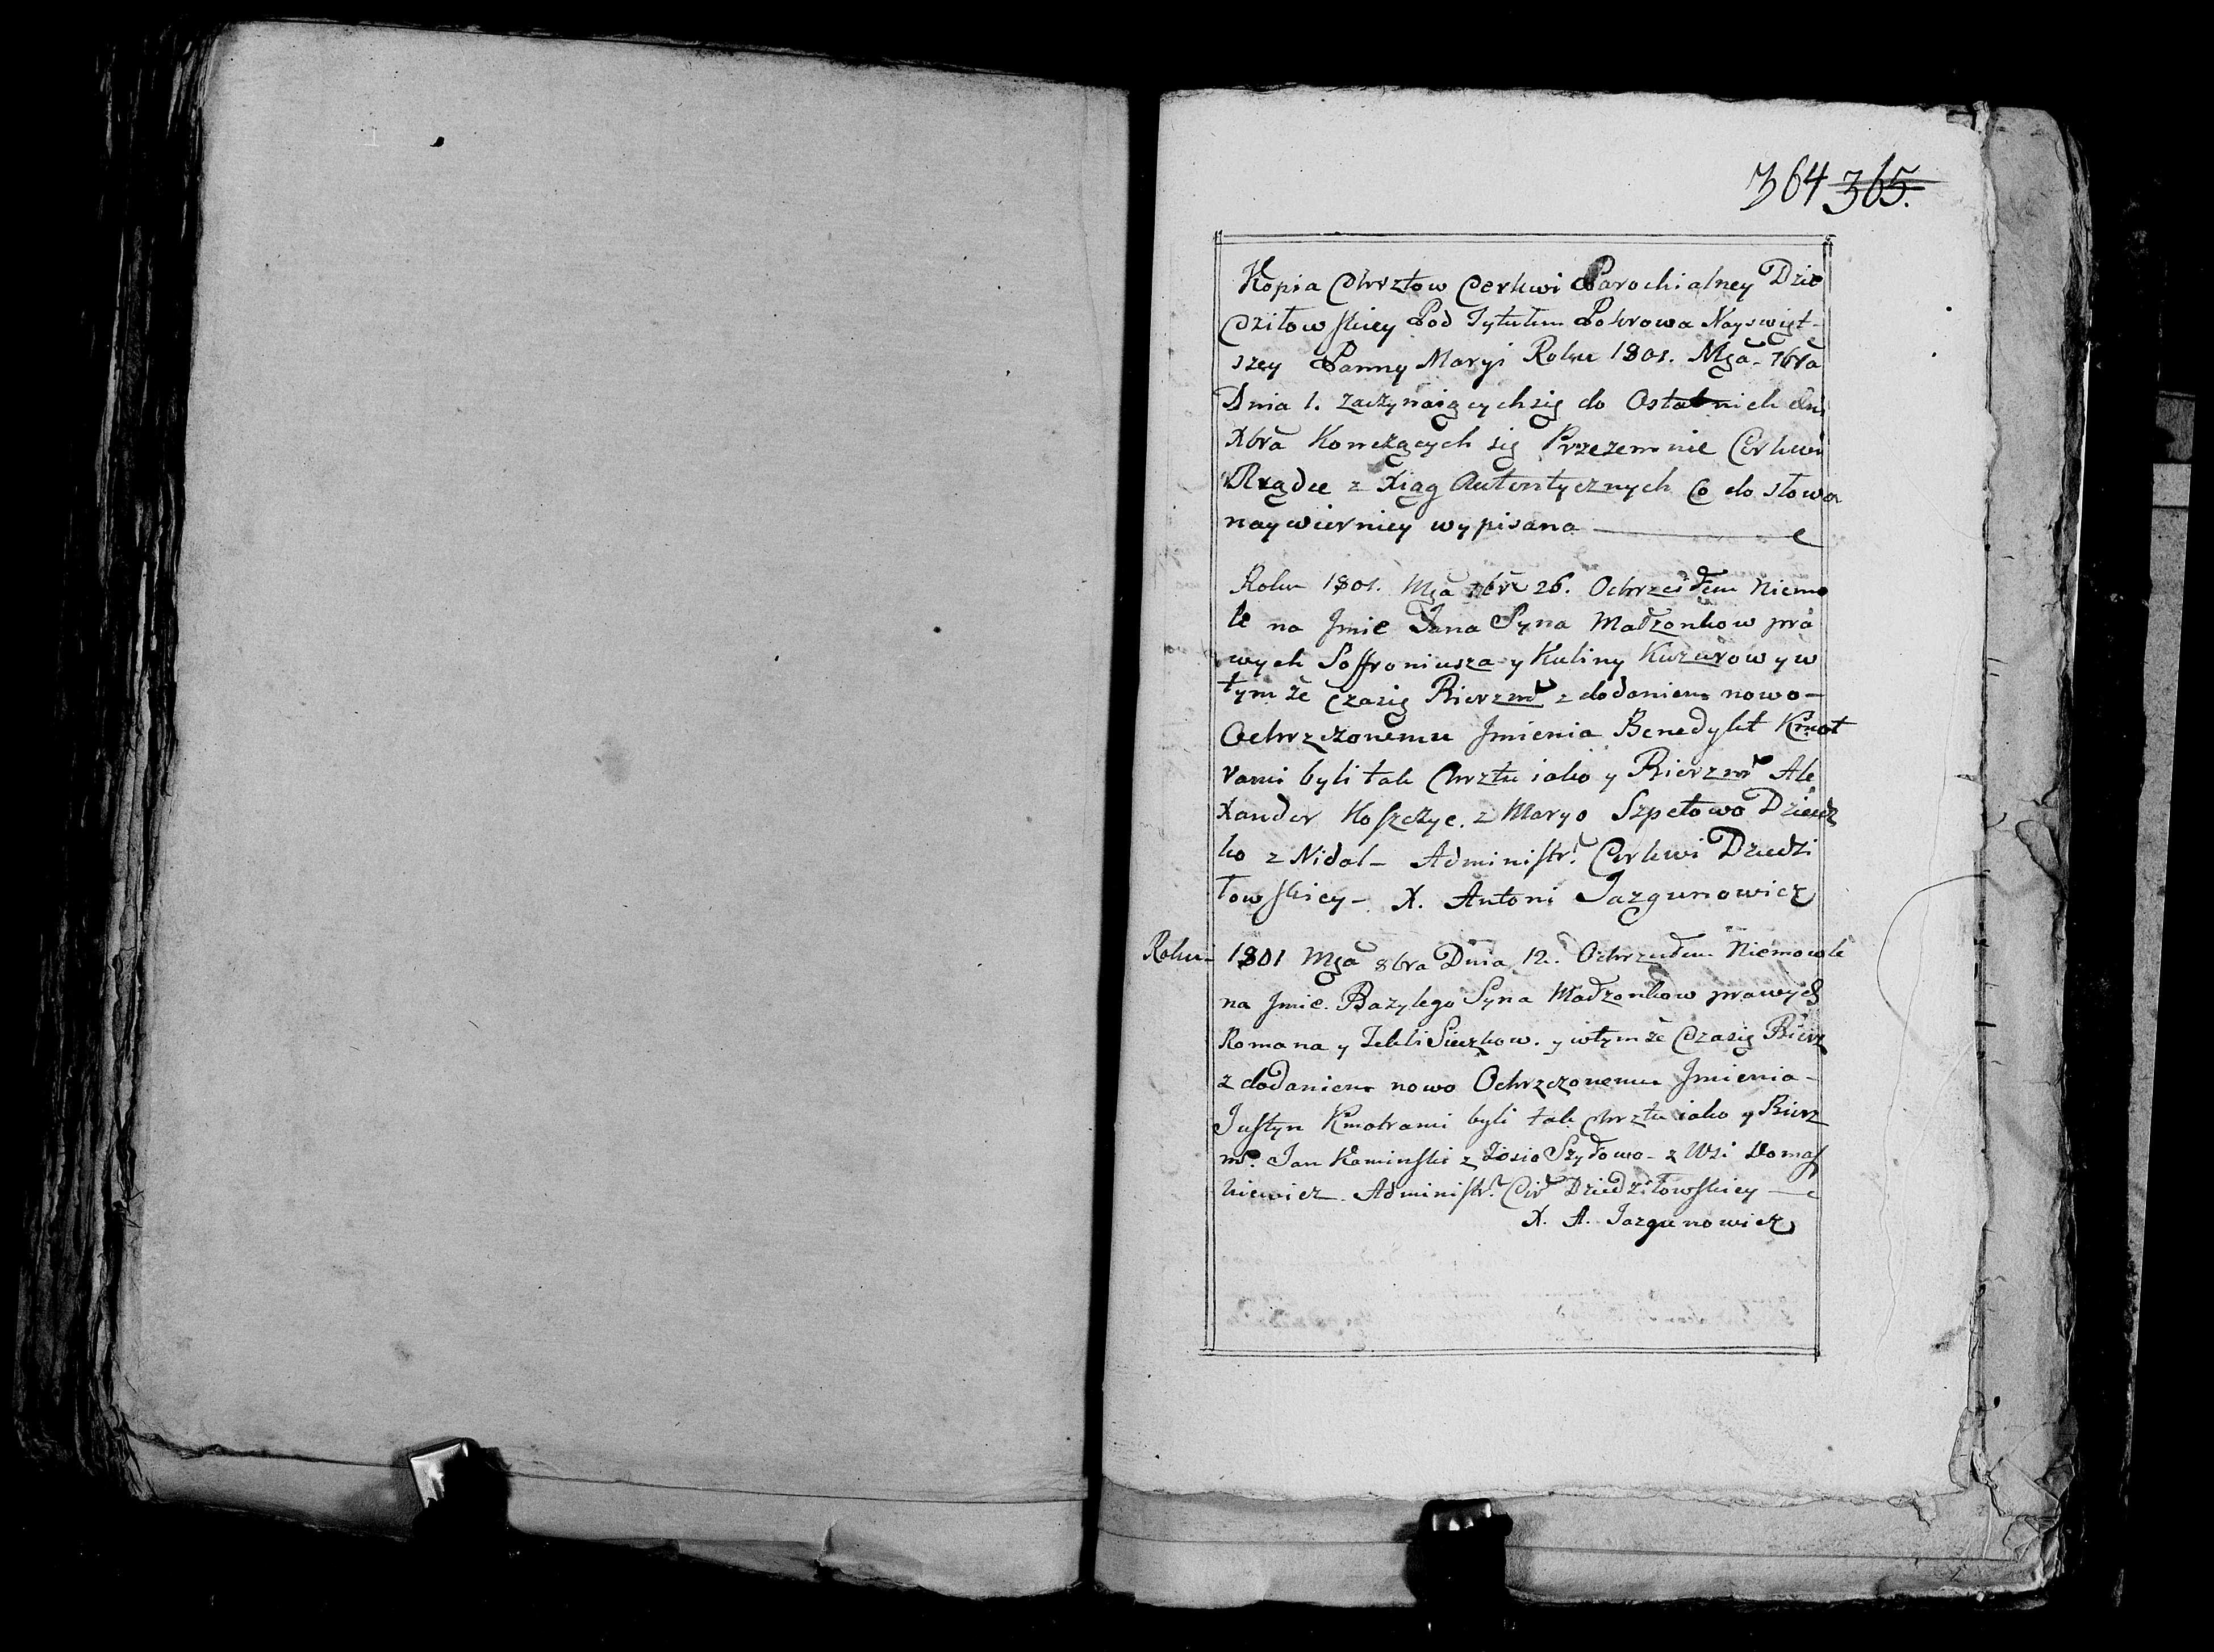 364 365.
Kopia Chrztow Cerkwi Parochialney Dzie
dziłowskiey Pod Tytułem Pokrowa Nayswięt-
szey Panny Maryi Roku 1801. Mca 7bra
Dnia 1. zaczynaiących się do Ostatnich dni
Xbra Konczących się Przezemnie Cerkwi
Rządce z Xiąg Autentycznych Co do słowa
naywierniey wypisana
Roku 1801. Mca 7bra 26. Ochrzciłem Niemo
le na Jmie Jana Syna Małżonkow pra
wych Soffroniusza y Kuliny Kuzurow y w
tymże Czasie Bierzm z dodaniem nowo-
Ochrzczonemu Jmienia Benedykt Kmot
rami byli tak Chrztu iako y Bierzm Ale
Xander Koszczyc. z Maryo Szpetowo
z Nidal- Administr. Cerkwi Dziedzi
łowskiey- X. Antoni Jazgunowicz
Roku- 1801 Mca 8bra Dnia 12. Ochrzciłem Niemowle
na Jmie. Bazylego Syna Małżonkow prawych
Romana y Tekli Sieczkow. y wtymże Czasie Bierz
z dodaniem nowo Ochrzczonemu Jmienia-
Justyn Kmotrami byli tak chrztu iako y Bierz
m. Jan Kaminski z Zosio Szydłowo- z Wsi Domas
kiewicz. Administr. Cer Dziedziłowskiey
X. A. Jazgunowicz